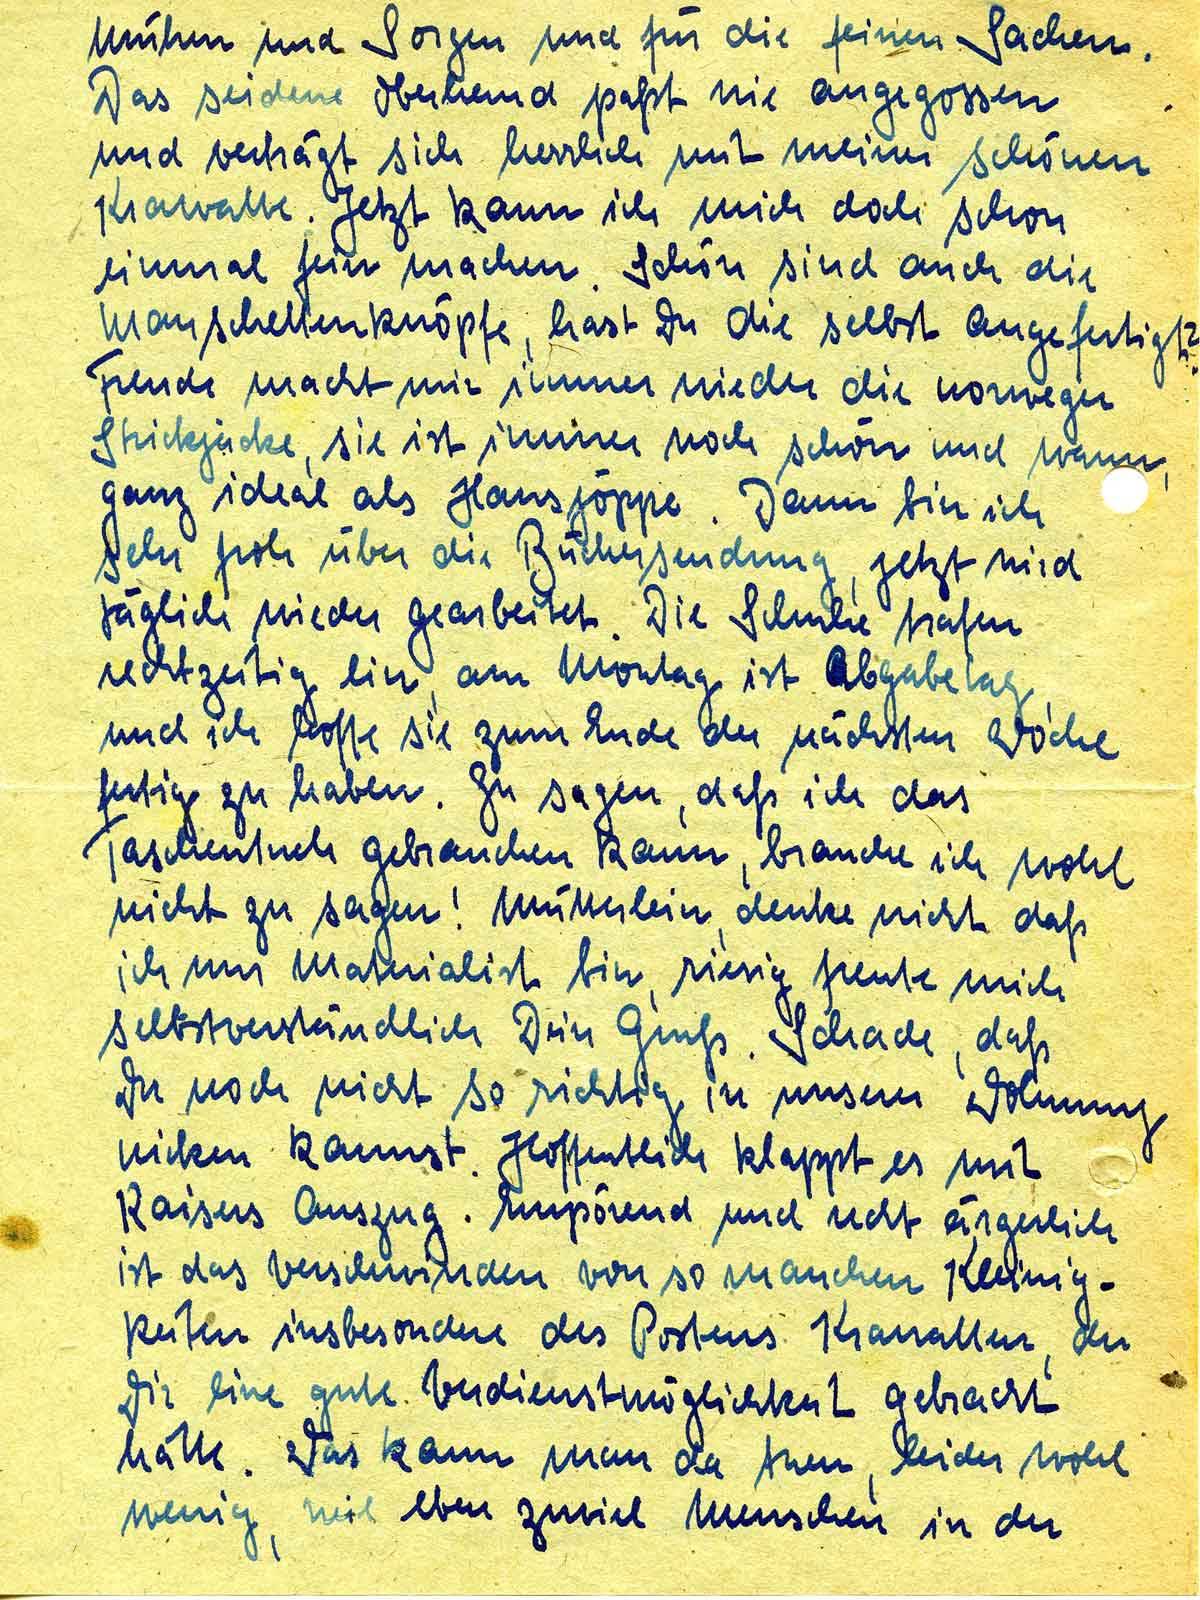 Mühen und Sorgen und für die feinen Sachen.
Das seidene Oberhemd paßt wie angegossen
und verträgt sich herrlich mit meiner schönen
Krawatte. Jetzt kann ich mich doch schon
einmal fein machen. Schön sind auch die
Manschettenknöpfe, hast Du die selbst angefertigt?
Freude macht mir immer wieder die norweger
Strickjacke, sie ist immer noch schön und warm,
ganz ideal als Hausjoppe. Dann bin ich
sehr froh über die Büchersendung, jetzt wird
täglich wieder gearbeitet. Die Schuhe trafen
rechtzeitig ein, am Montag ist Abgabetag
und ich hoffe sie zum Ende der nächsten Woche
fertig zu haben. Zu sagen, daß ich das
Taschentuch gebrauchen kann, brauche ich wohl
nicht zu sagen! Mütterlein, denke nicht daß
ich nur Materialist bin, riesig freute mich
selbstverständlich Dein Gruß. Schade, daß
Du noch nicht so richtig in unserer Wohnung
wirken kannst. Hoffentlich klappt es mit
Kaisers Auszug. Empörend und recht ärgerlich
ist das Verschwinden von so manchen Kleinig-
keiten insbesondere des Postens Krawatten, der
Dir eine gute Verdienstmöglichkeit gebracht
hätte. Was kann man da tuen, leider wohl
wenig, weil eben zuviel Menschen in der